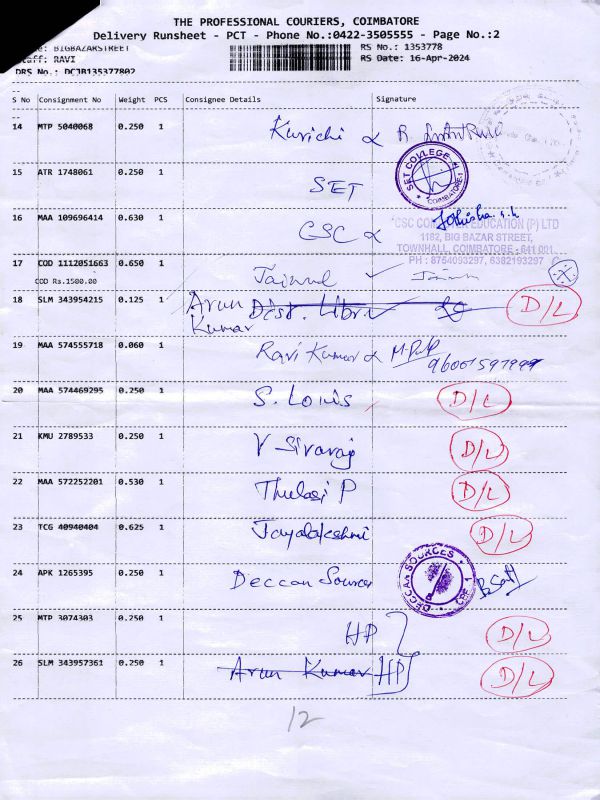 THE PROFESSIONAL COURIERS, COIMBATORE
Delivery Runsheet - PCT - Phone No.:0422-3505555 - Page No.:2
BIGBAZARSTREET RS No.: 1353778
Staff: RAVI RS Date: 16-Apr-2024
DRS No.: DCJB135377802
S No Consignment No Weight PCS Consignee Details Signature
14 MTP 5040068 0.250 1 Kurichi
15 ATR 1748061 0.250 1 SET
SET COLLEGE
COIMBATORE-1
16 MAA 109696414 0.630 1 CSC
CSC COMPUTER EDUCATION (P) LTD
1182, BIG BAZAR STREET,
TOWNHALL, COIMBATORE - 641 001.
PH : 8754093297, 6382193297
17 COD 1112051663 0.650 1 Jainul
COD Rs.1500.00
18 SLM 343954215 0.125 1 Arun Kumar Dist. Library D/L
19 MAA 574555718 0.060 1 Ravi Kumar
20 MAA 574469295 0.250 1 S. Louis D/L
21 KMU 2789533 0.250 1 V Sivaraj D/L
22 MAA 572252201 0.530 1 Thulasi P D/L
23 TCG 40940404 0.625 1 Jayalakshmi D/L
24 APK 1265395 0.250 1 Deccan Sources
DECCAN SOURCES
CBE - 1
25 MTP 3074303 0.250 1 HP D/L
26 SLM 343957361 0.250 1 Arun Kumar HP D/L
12